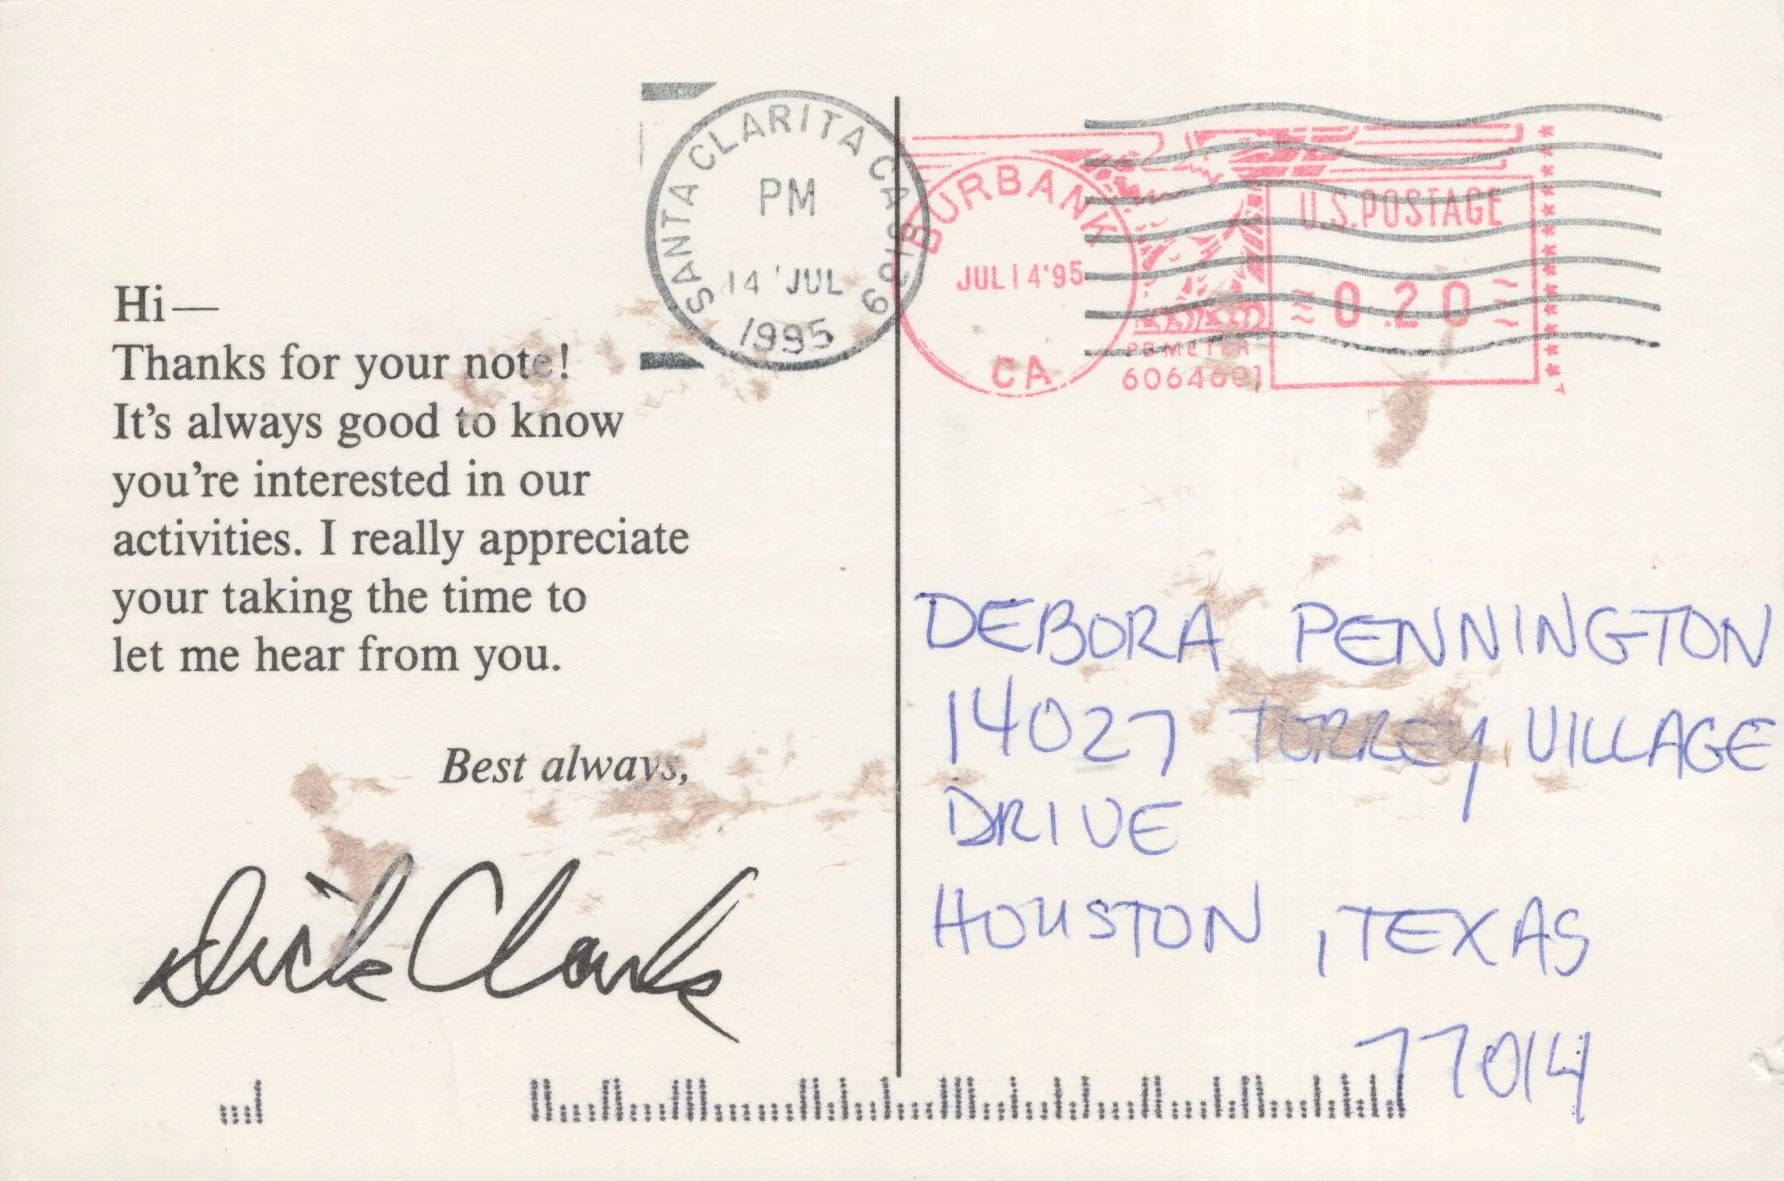 SANTA CLARITA CA 913
PM
14 'JUL
1995
BURBANK
JUL 14'95
CA
U.S. POSTAGE
0.20
PB METER
Hi—
Thanks for your note!
It's always good to know
you're interested in our
activities. I really appreciate
your taking the time to
let me hear from you.
Best always,
Dick Clark
DEBORA PENNINGTON
14027 TORREY VILLAGE
DRIVE
HOUSTON, TEXAS
77014